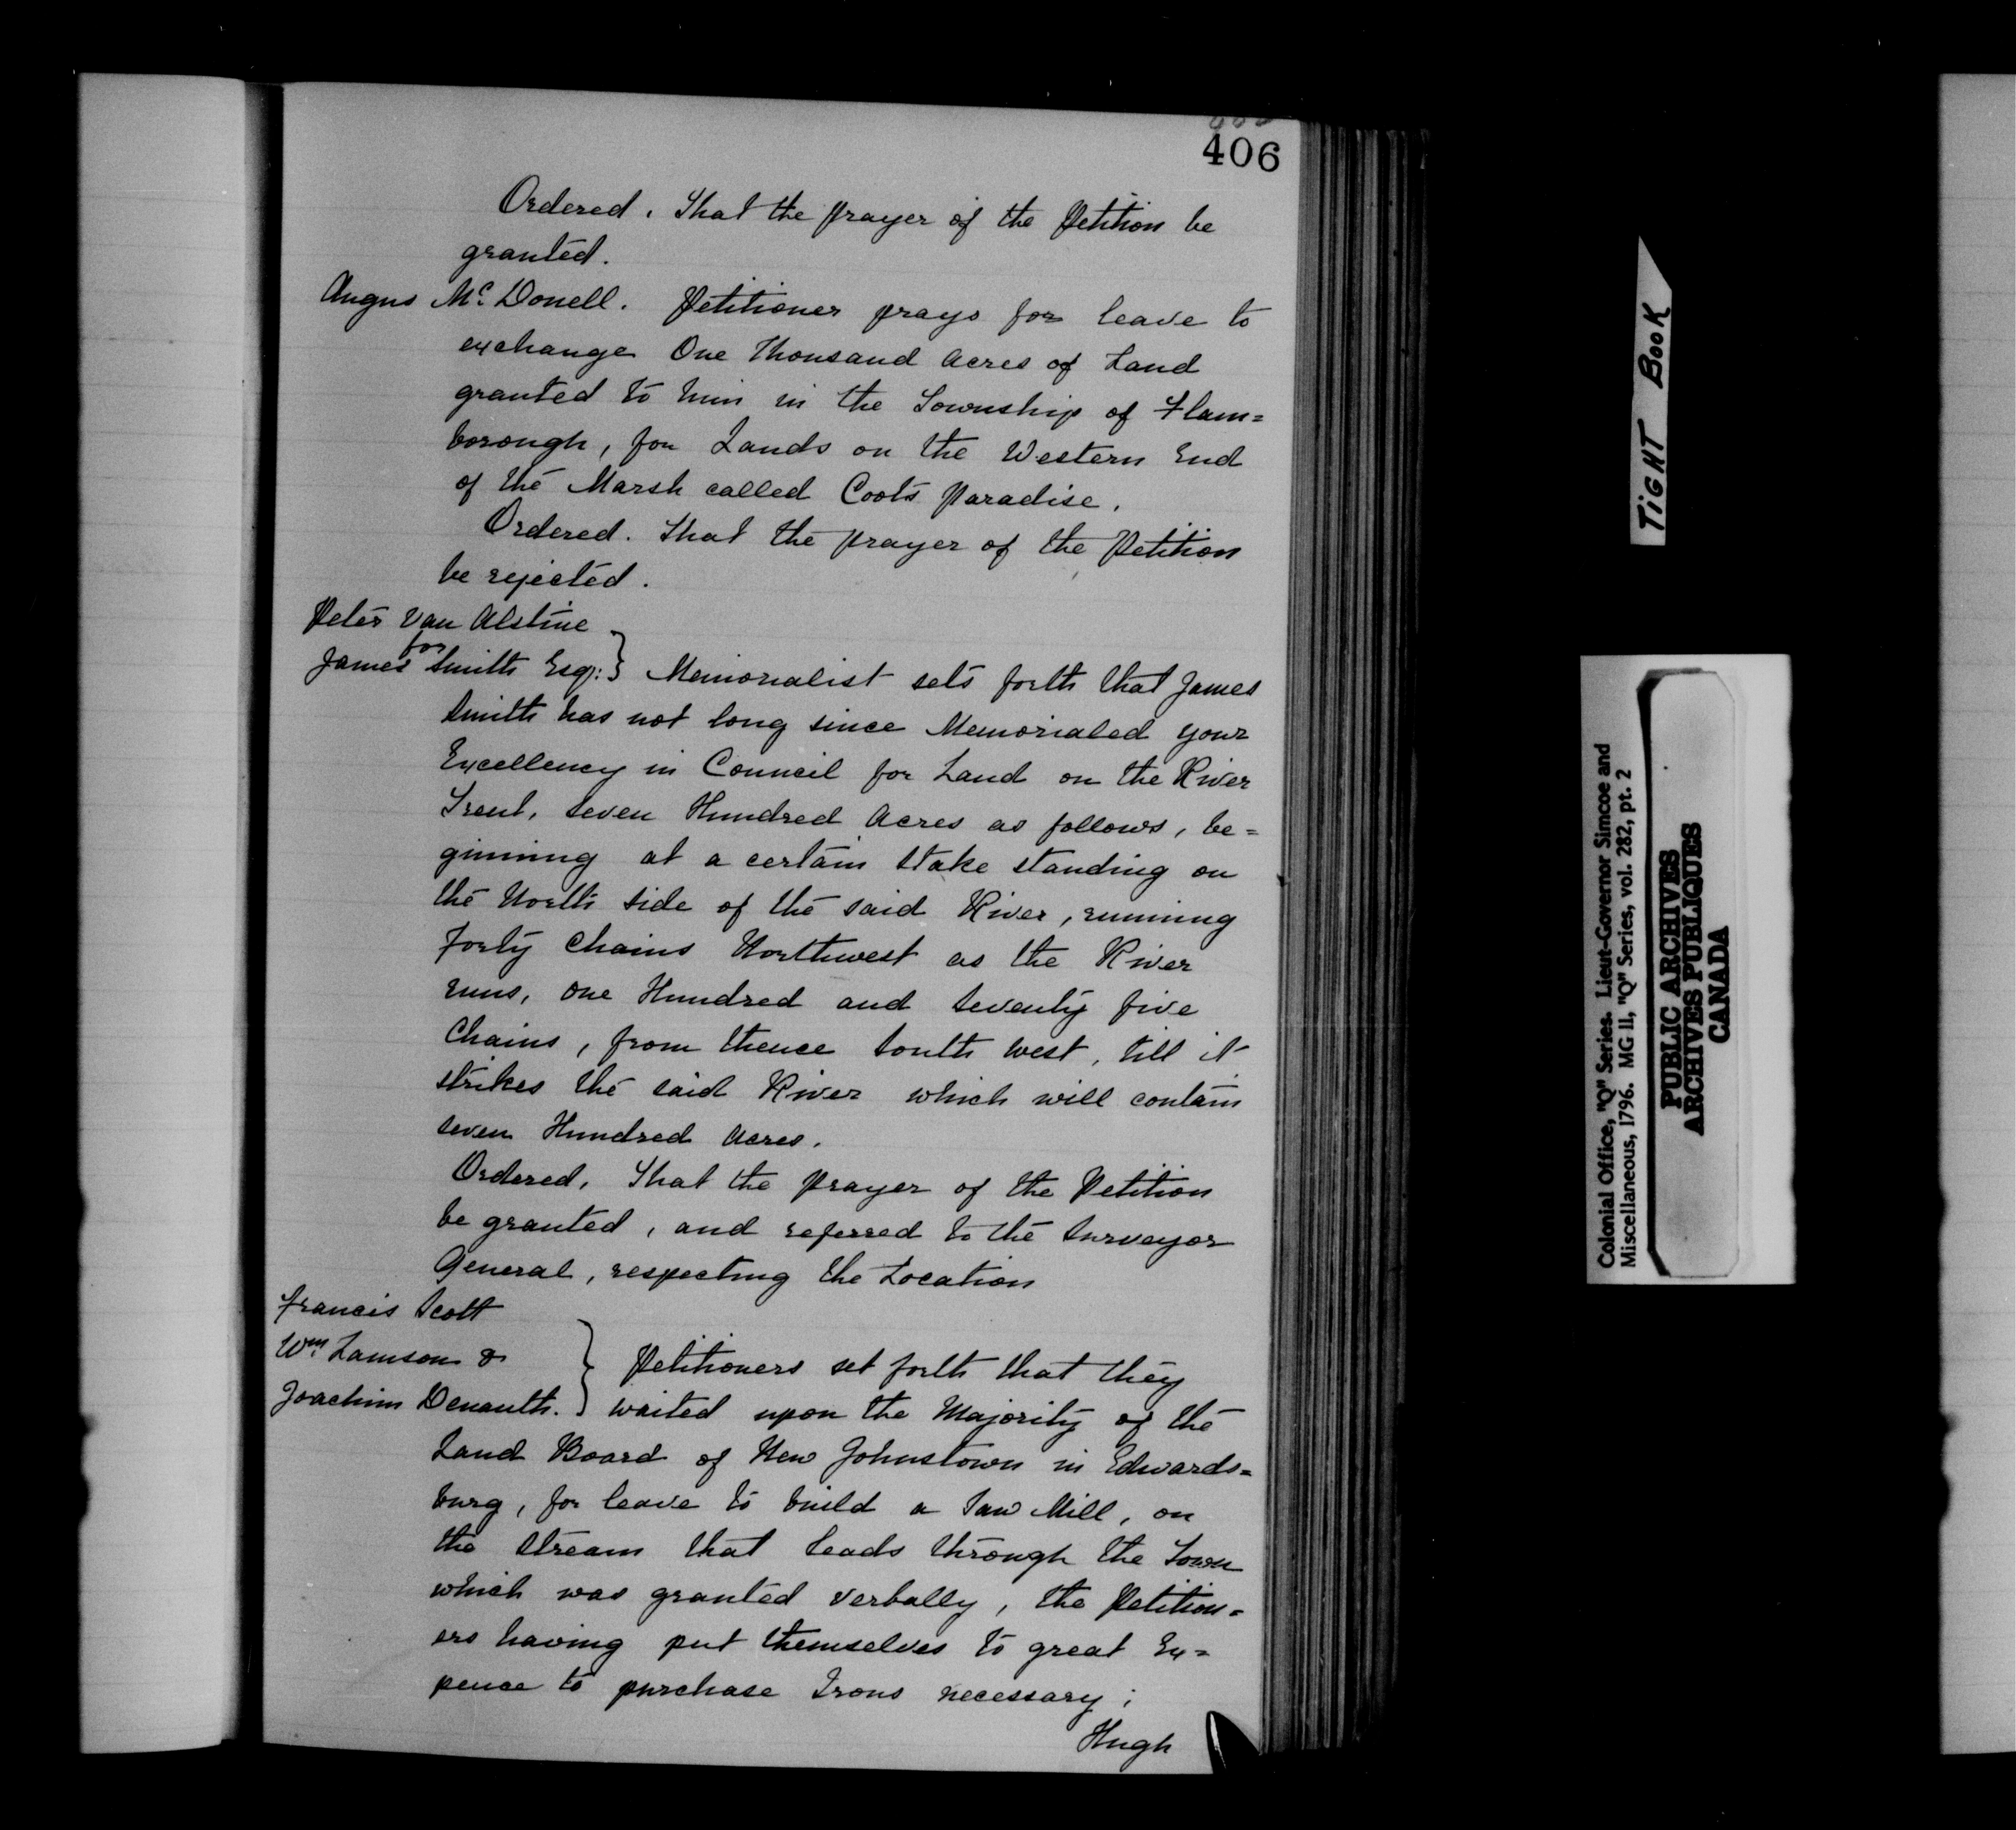 406
Ordered. That the prayer of the Petition be
granted.
Angus McDonell. Petitioner prays for leave to
exchange One Thousand Acres of Land
granted to him in the Township of Flam=
borough, for Lands on the Western End
of the Marsh called Coots Paradise.
Ordered. That the prayer of the Petition
be rejected.
Peter Van Alstine
for
James Smith Esqr: } Memorialist sets forth that James
Smith has not long since Memorialed your
Excellency in Council for Land on the River
Trent, Seven Hundred Acres as follows, be=
ginning at a certain Stake standing on
the North side of the said River, running
forty Chains Northwest as the River
runs, one Hundred and Seventy five
Chains, from thence South West, till it
strikes the said River which will contain
seven Hundred Acres.
Ordered, That the prayer of the Petition
be granted, and referred to the Surveyor
General, respecting the Location
Francis Scott
Wm Lamson &
Petitioners set forth that they
Joachim Denault. } waited upon the Majority of the
Land Board of New Johnstown in Edwards=
burg, for leave to build a Saw Mill, on
the Stream that leads through the Town
which was granted verbally, the Petition=
ers having put themselves to great Ex=
pence to purchase Irons necessary;
Hugh
TIGHT BOOK
Colonial Office, "Q" Series. Lieut-Governor Simcoe and
Miscellaneous, 1796. MG 11, "Q" Series, vol. 282, pt. 2
PUBLIC ARCHIVES
ARCHIVES PUBLIQUES
CANADA